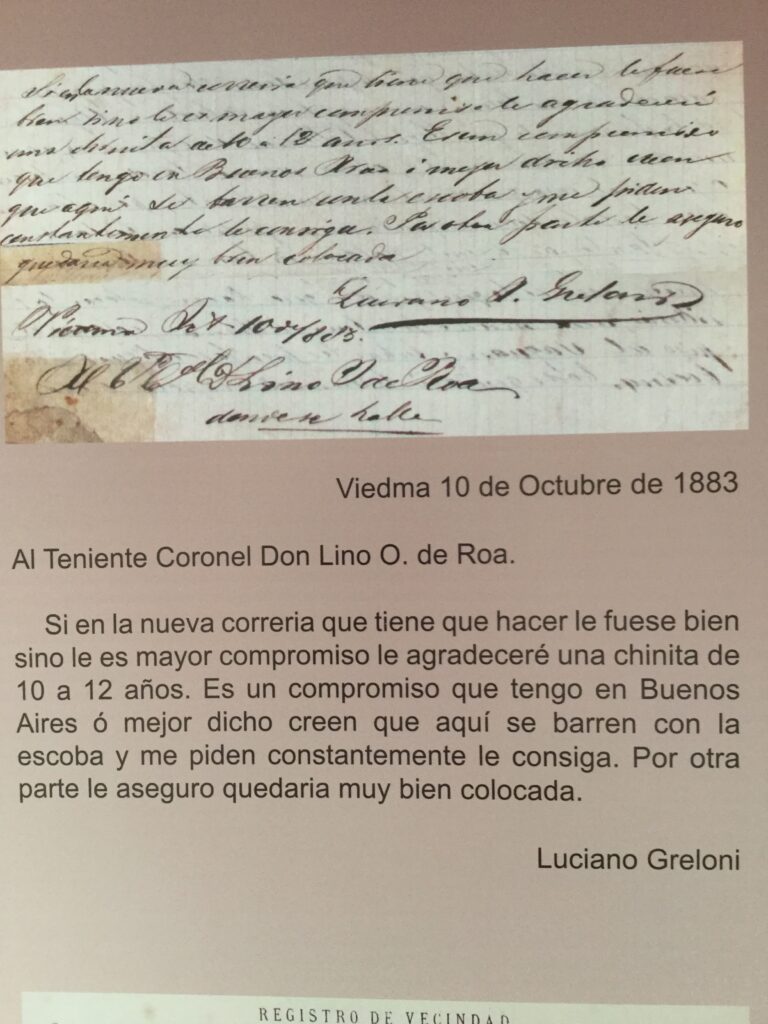 Si en la nueva correria que tiene que hacer le fuese
bien sino le es mayor compromiso le agradeceré
una chinita de 10 a 12 años. Es un compromiso
que tengo en Buenos Aires ó mejor dicho creen
que aquí se barren con la escoba y me piden
constantemente le consiga. Por otra parte le aseguro
quedaria muy bien colocada
Luciano Greloni
Viedma 10 de 1883.
Al Lino O. de Roa
donde se halle
Viedma 10 de Octubre de 1883
Al Teniente Coronel Don Lino O. de Roa.
Si en la nueva correria que tiene que hacer le fuese bien
sino le es mayor compromiso le agradeceré una chinita de
10 a 12 años. Es un compromiso que tengo en Buenos
Aires ó mejor dicho creen que aquí se barren con la
escoba y me piden constantemente le consiga. Por otra
parte le aseguro quedaria muy bien colocada.
Luciano Greloni
REGISTRO DE VECINDAD